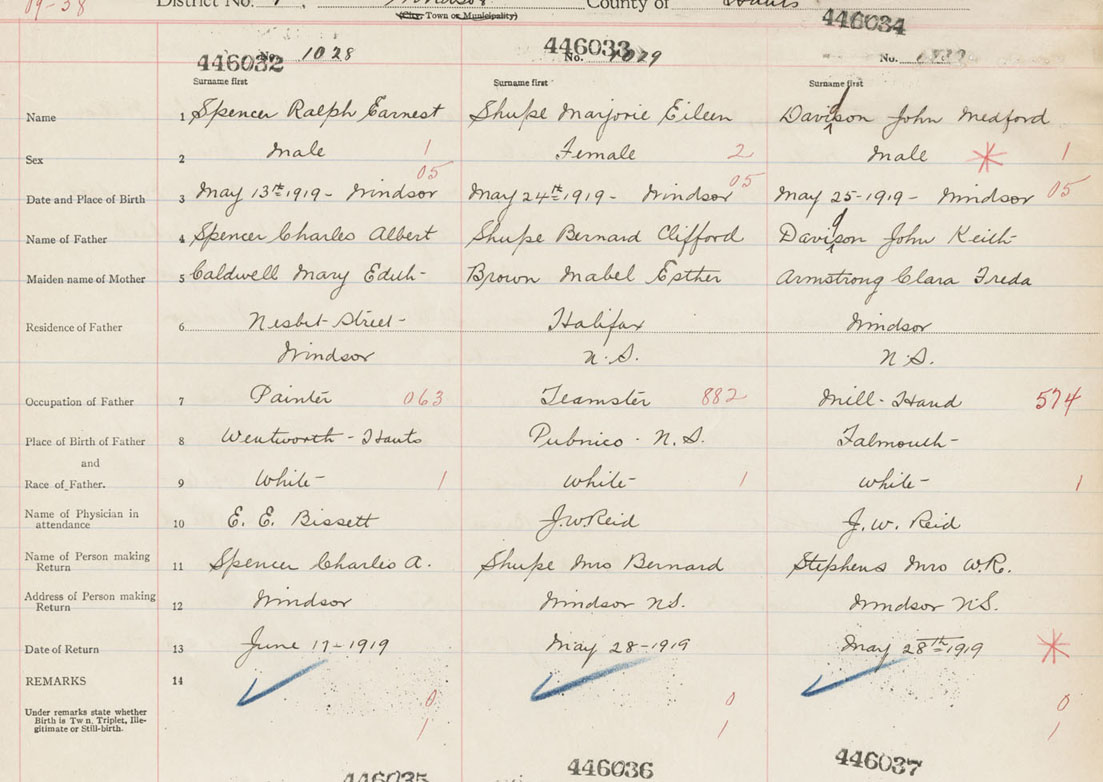 09-38 District No. 1, Windsor County of Hants
(City, Town or Municipality)
446032 No. 1028 446033 No. 1029 446034 No.
Surname first Surname first Surname first
Name 1 Spencer Ralph Earnest Shupe Marjorie Eileen Davidson John Medford
Sex 2 Male 1 Female 2 Male * 1
05 05 05
Date and Place of Birth 3 May 13th 1919 - Windsor May 24th 1919 - Windsor May 25-1919 - Windsor
Name of Father 4 Spencer Charles Albert Shupe Bernard Clifford Davidson John Keith
Maiden name of Mother 5 Caldwell Mary Edith Brown Mabel Esther Armstrong Clara Freda
Residence of Father 6 Nesbit Street - Halifax Windsor
Windsor N.S. N.S.
Occupation of Father 7 Painter 063 Teamster 882 Mill-Hand 574
Place of Birth of Father 8 Wentworth - Hants Pubnico - N.S. Falmouth -
and
Race of Father. 9 White - 1 White - 1 White - 1
Name of Physician in attendance 10 E. E. Bissett J.W. Reid J. W. Reid
Name of Person making Return 11 Spencer Charles A. Shupe Mrs Bernard Stephens Mrs W.R.
Address of Person making Return 12 Windsor Windsor N.S. Windsor N.S.
Date of Return 13 June 17-1919 May 28-1919 May 28th 1919 *
REMARKS 14
0 0 0
Under remarks state whether
Birth is Tw n, Triplet, Ille-
gitimate or Still-birth.
1 1 1
446035 446036 446037